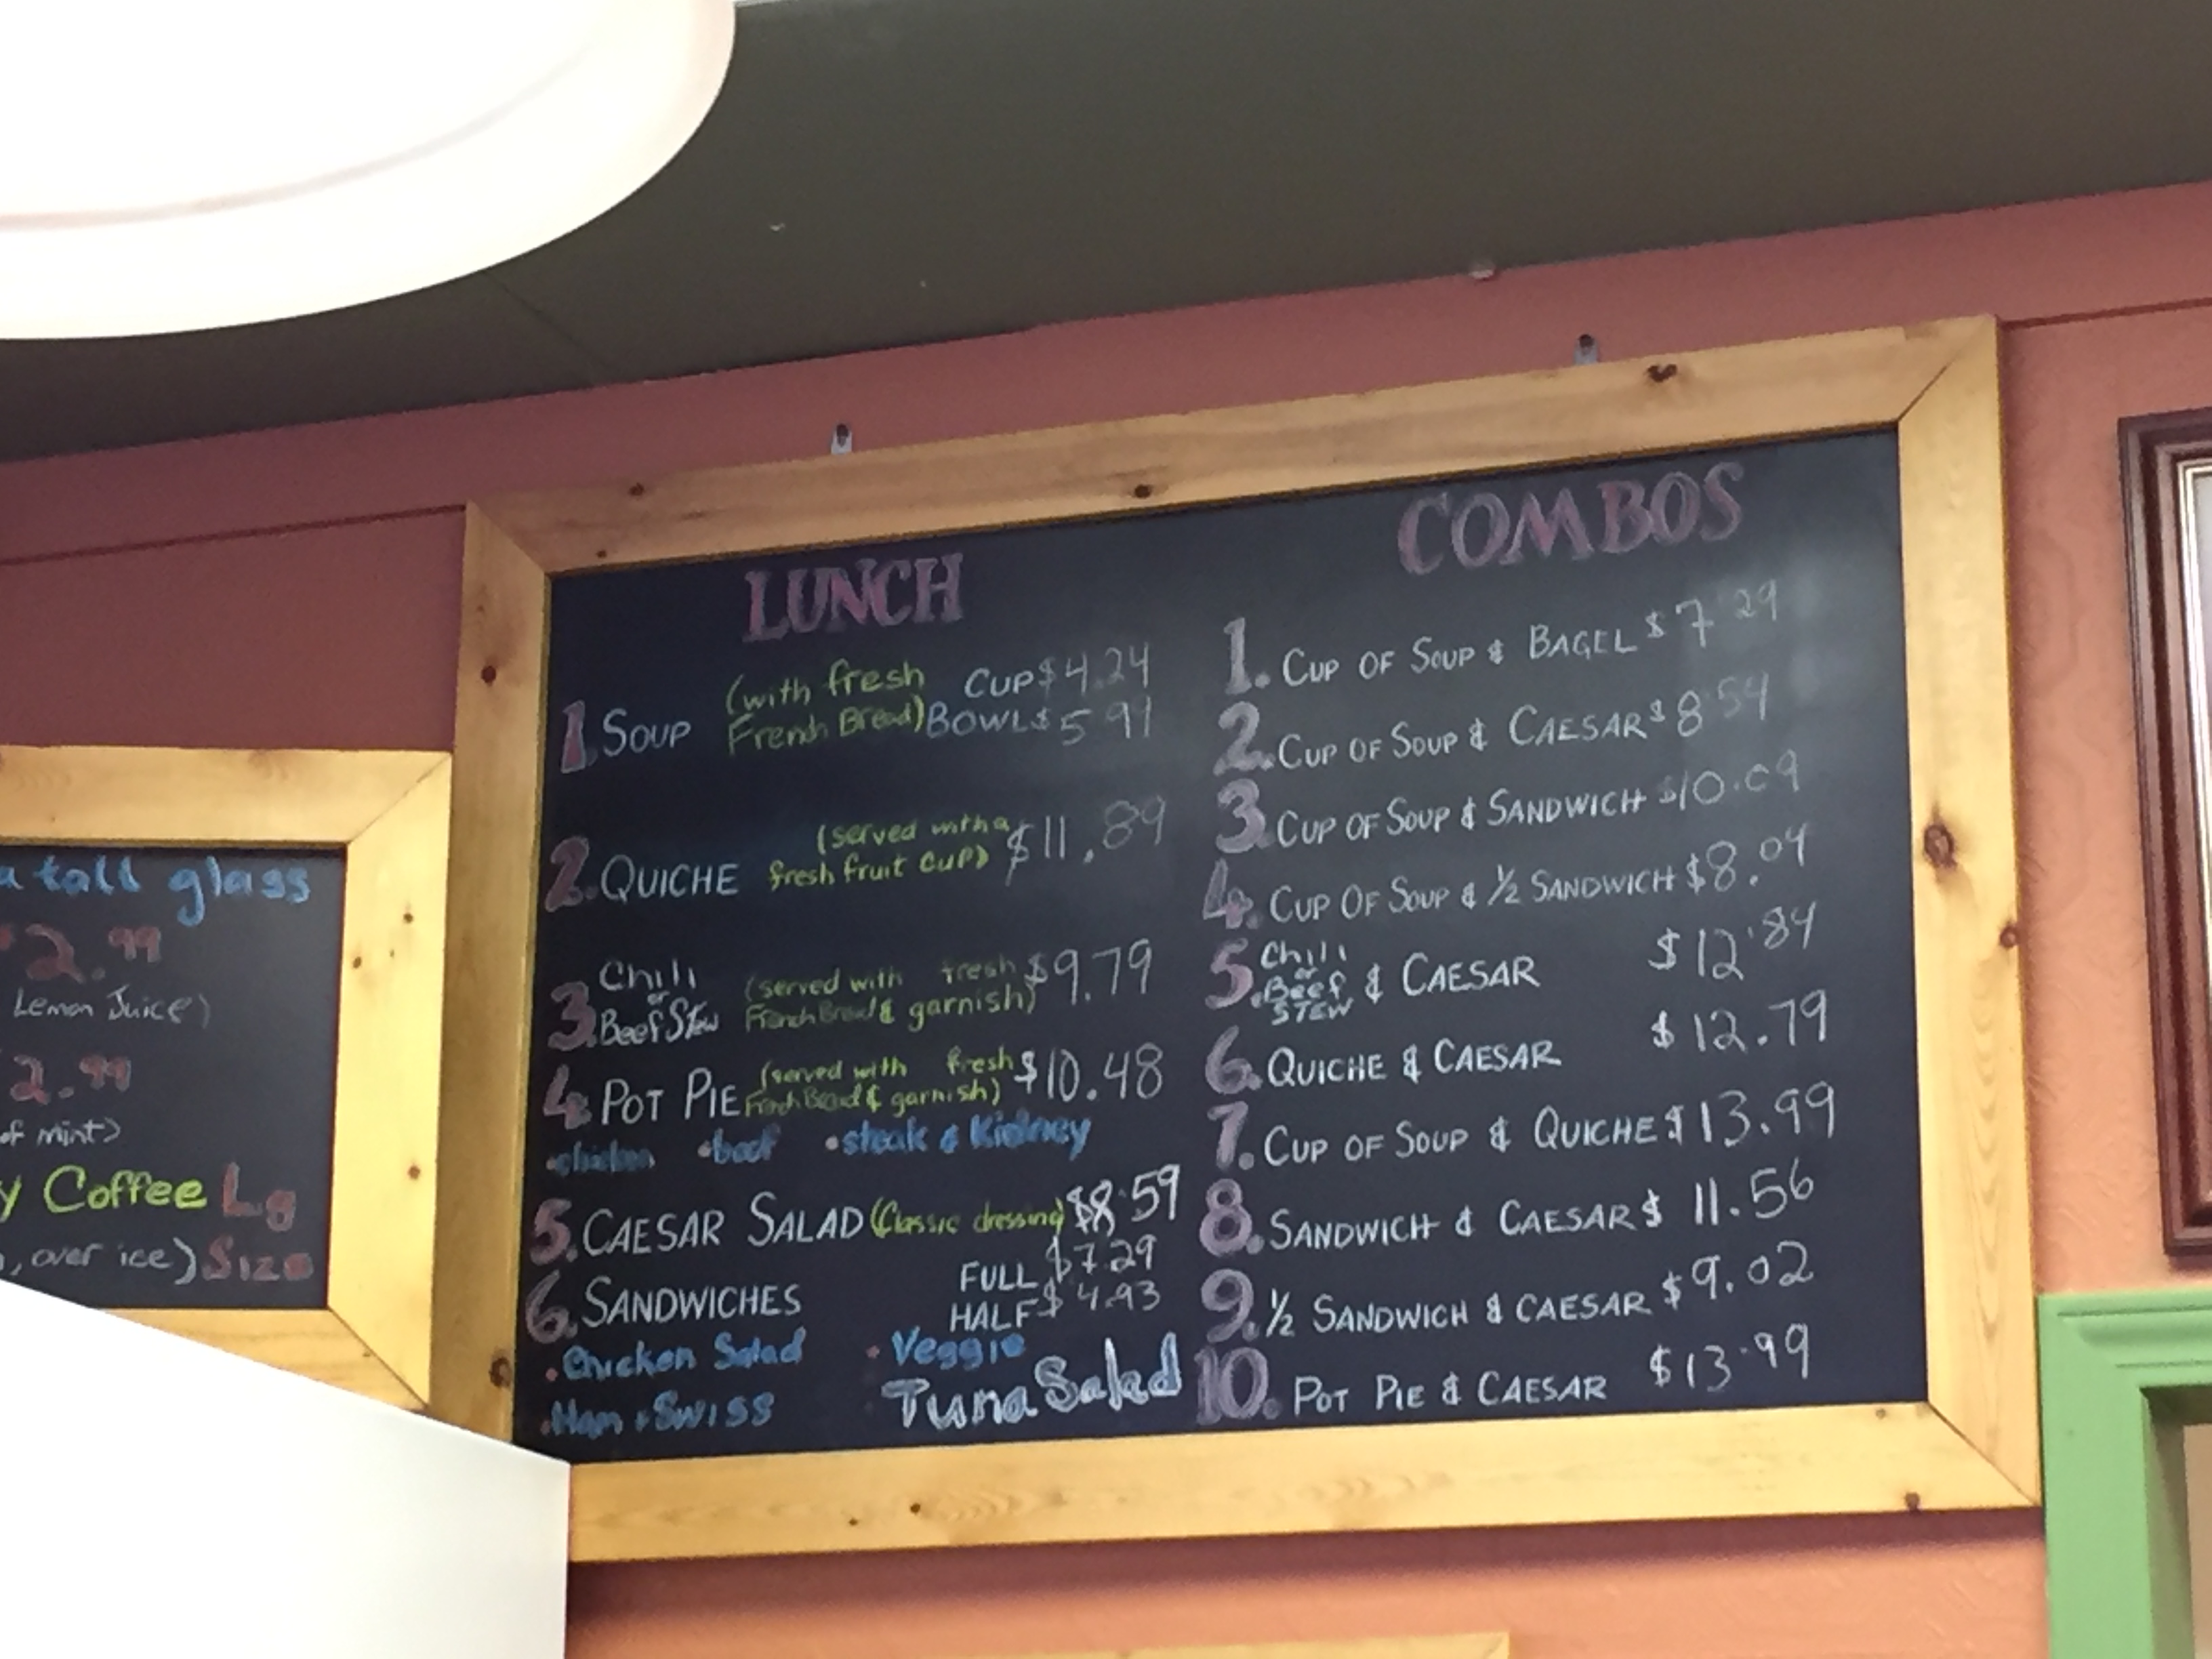 a tall glass
$2.99
Lemon Juice)
2.99
of mint)
y Coffee Lg
, over ice) Size
LUNCH
1. SOUP (with fresh French Bread) CUP $4.24
BOWL $5.91
2. QUICHE (served with a fresh fruit cup) $11.89
3. Chili or Beef Stew (served with fresh French Bread & garnish) $9.79
4. POT PIE (served with fresh French Bread & garnish) $10.48
• chicken • beef • steak & Kidney
5. CAESAR SALAD (Classic dressing) $8.59
6. SANDWICHES FULL $7.29
HALF $4.93
• Chicken Salad • Veggie
• Ham & Swiss Tuna Salad
COMBOS
1. CUP OF SOUP & BAGEL $7.29
2. CUP OF SOUP & CAESAR $8.54
3. CUP OF SOUP & SANDWICH $10.09
4. CUP OF SOUP & ½ SANDWICH $8.09
5. Chili or Beef STEW & CAESAR $12.84
6. QUICHE & CAESAR $12.79
7. CUP OF SOUP & QUICHE $13.99
8. SANDWICH & CAESAR $11.56
9. ½ SANDWICH & CAESAR $9.02
10. POT PIE & CAESAR $13.99